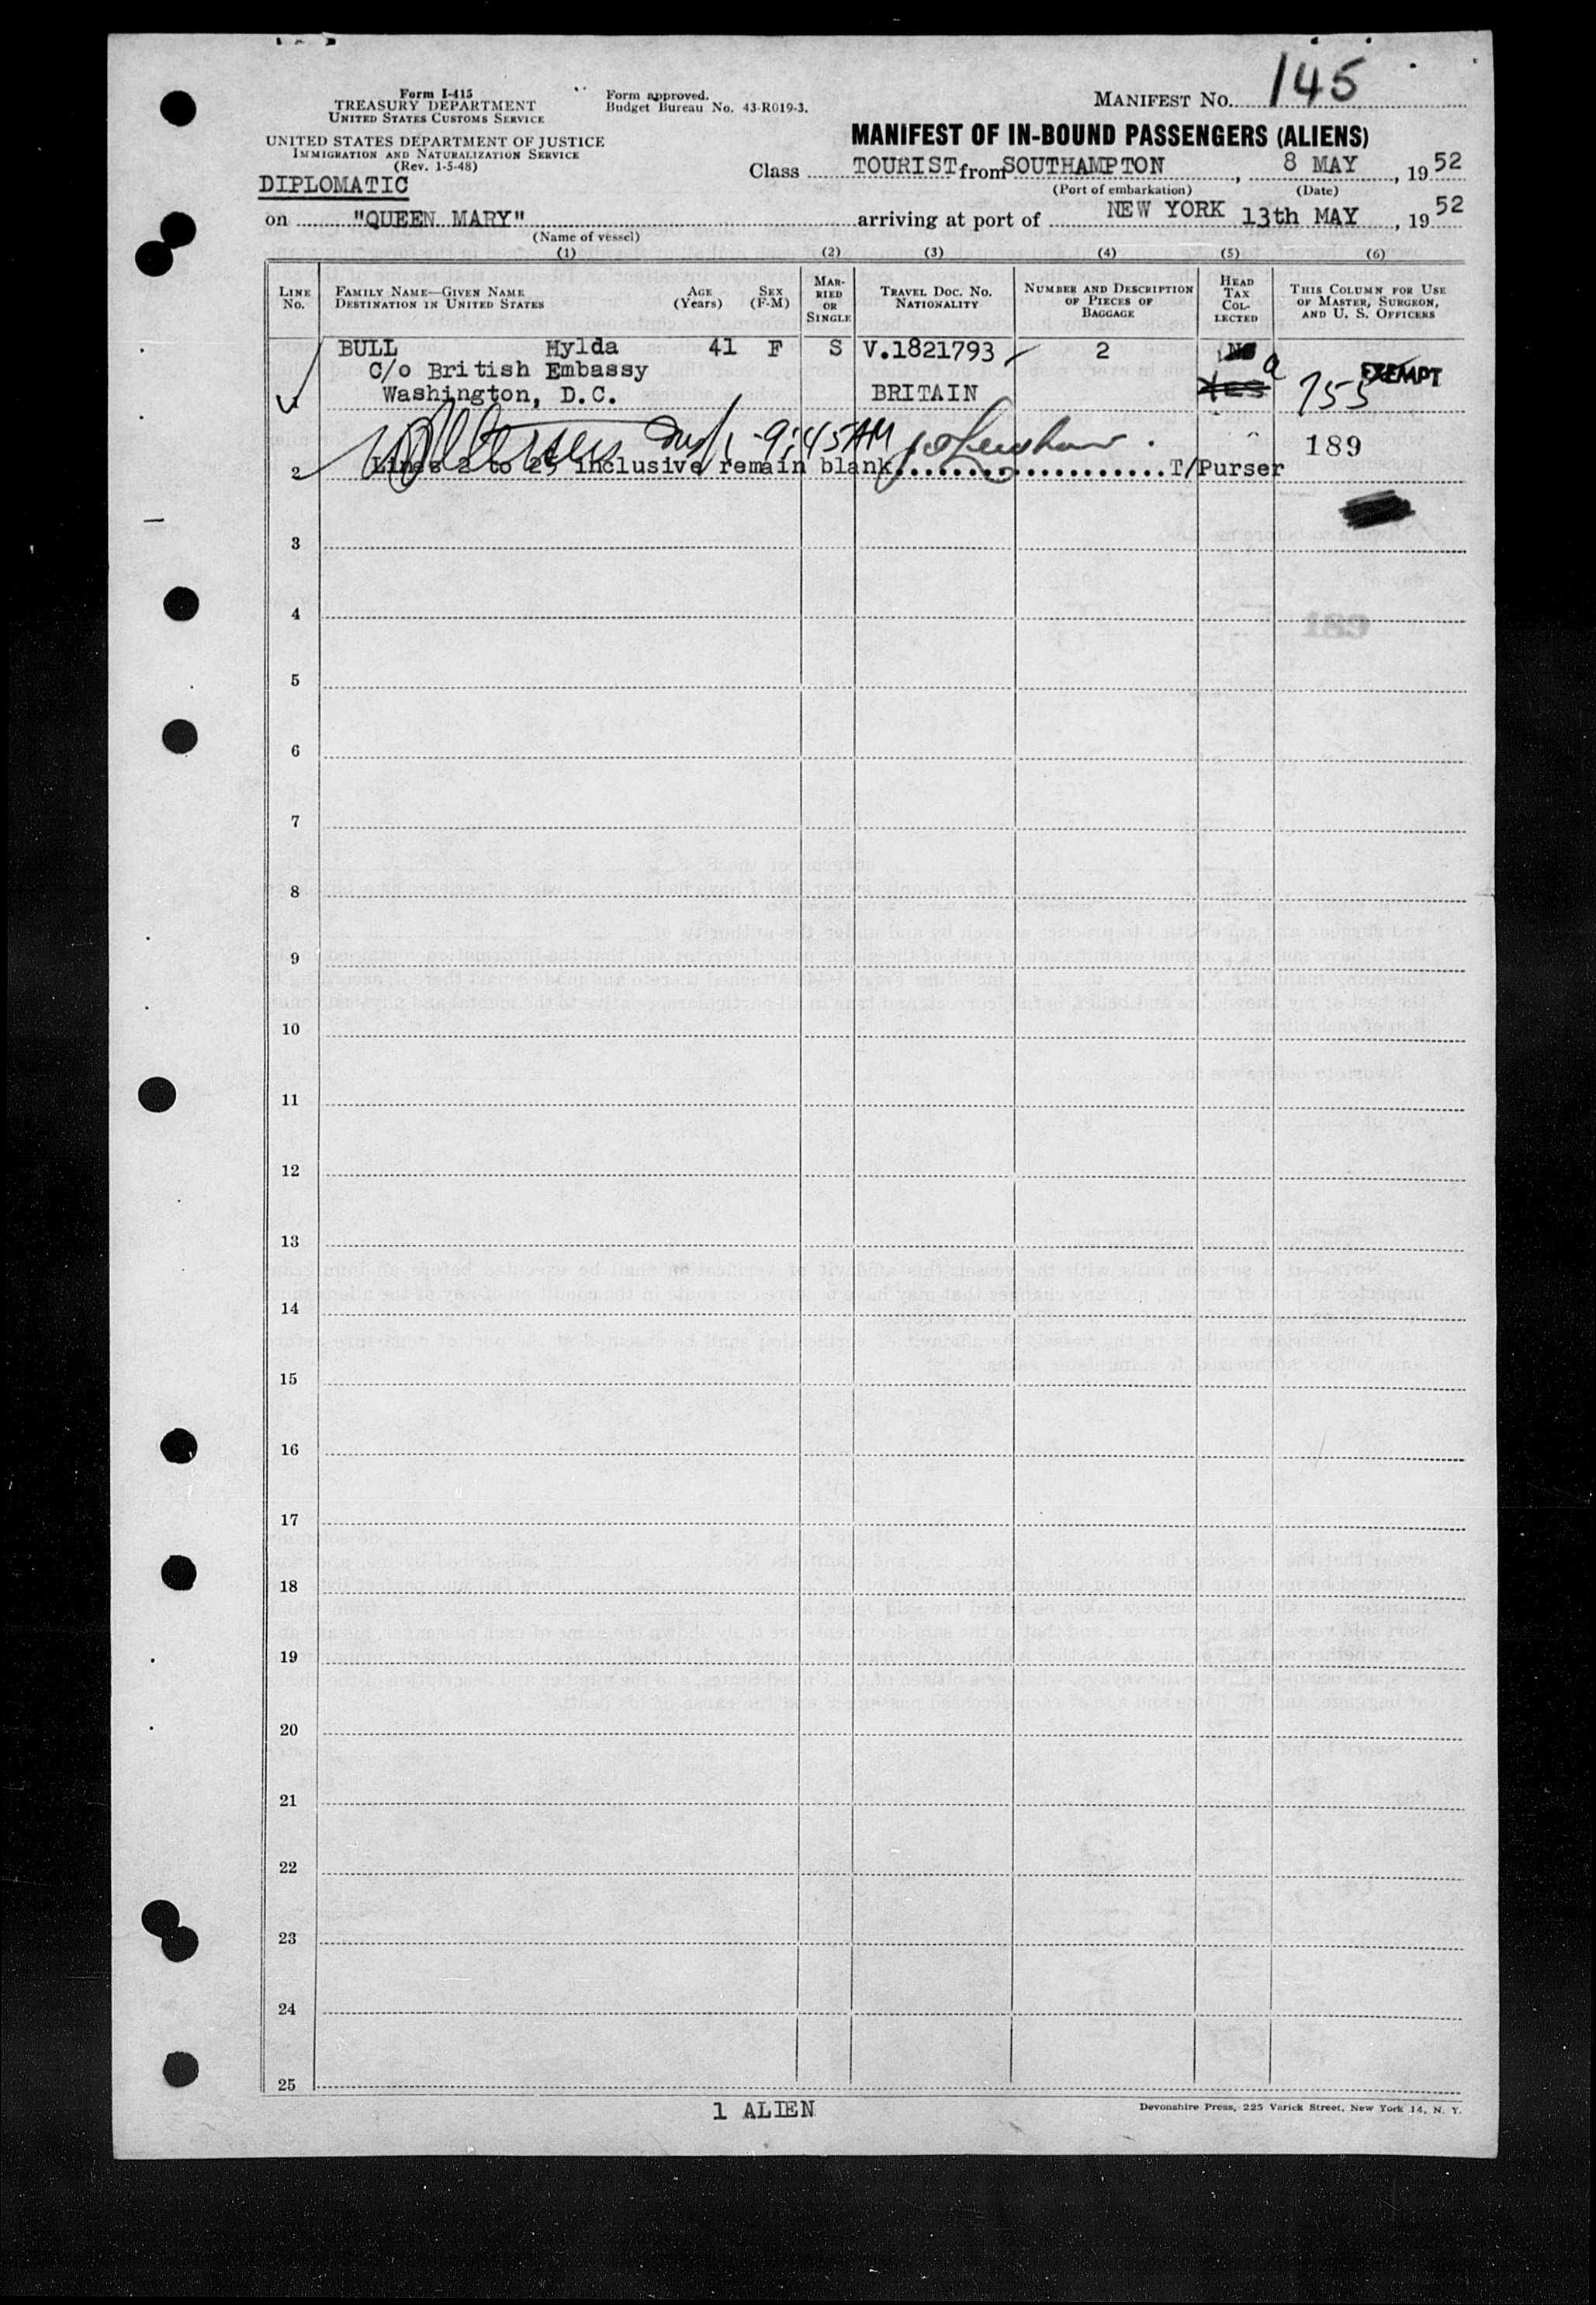 145
Form I-415
TREASURY DEPARTMENT
UNITED STATES CUSTOMS SERVICE
Form approved.
Budget Bureau No. 43-R019-3.
MANIFEST NO.
UNITED STATES DEPARTMENT OF JUSTICE
IMMIGRATION AND NATURALIZATION SERVICE
(Rev. 1-5-48)
MANIFEST OF IN-BOUND PASSENGERS (ALIENS)
DIPLOMATIC
Class TOURIST from SOUTHAMPTON, 8 MAY, 1952
(Port of embarkation) (Date)
on "QUEEN MARY" arriving at port of NEW YORK 13th MAY, 1952
(Name of vessel)
(1) (2) (3) (4) (5) (6)
LINE No. FAMILY NAME—GIVEN NAME DESTINATION IN UNITED STATES AGE (Years) SEX (F-M) MARRIED OR SINGLE TRAVEL DOC. NO. NATIONALITY NUMBER AND DESCRIPTION OF PIECES OF BAGGAGE HEAD TAX COLLECTED THIS COLUMN FOR USE OF MASTER, SURGEON, AND U. S. OFFICERS
BULL Hylda 41 F S V.1821793 2 NO
C/o British Embassy EXEMPT
Washington, D.C. BRITAIN YES 155
9:45 AM 189
2 Lines 2 to 25 inclusive remain blank....................T/Purser
3
4
5
6
7
8
9
10
11
12
13
14
15
16
17
18
19
20
21
22
23
24
25
1 ALIEN
Devonshire Press, 225 Varick Street, New York 14, N. Y.